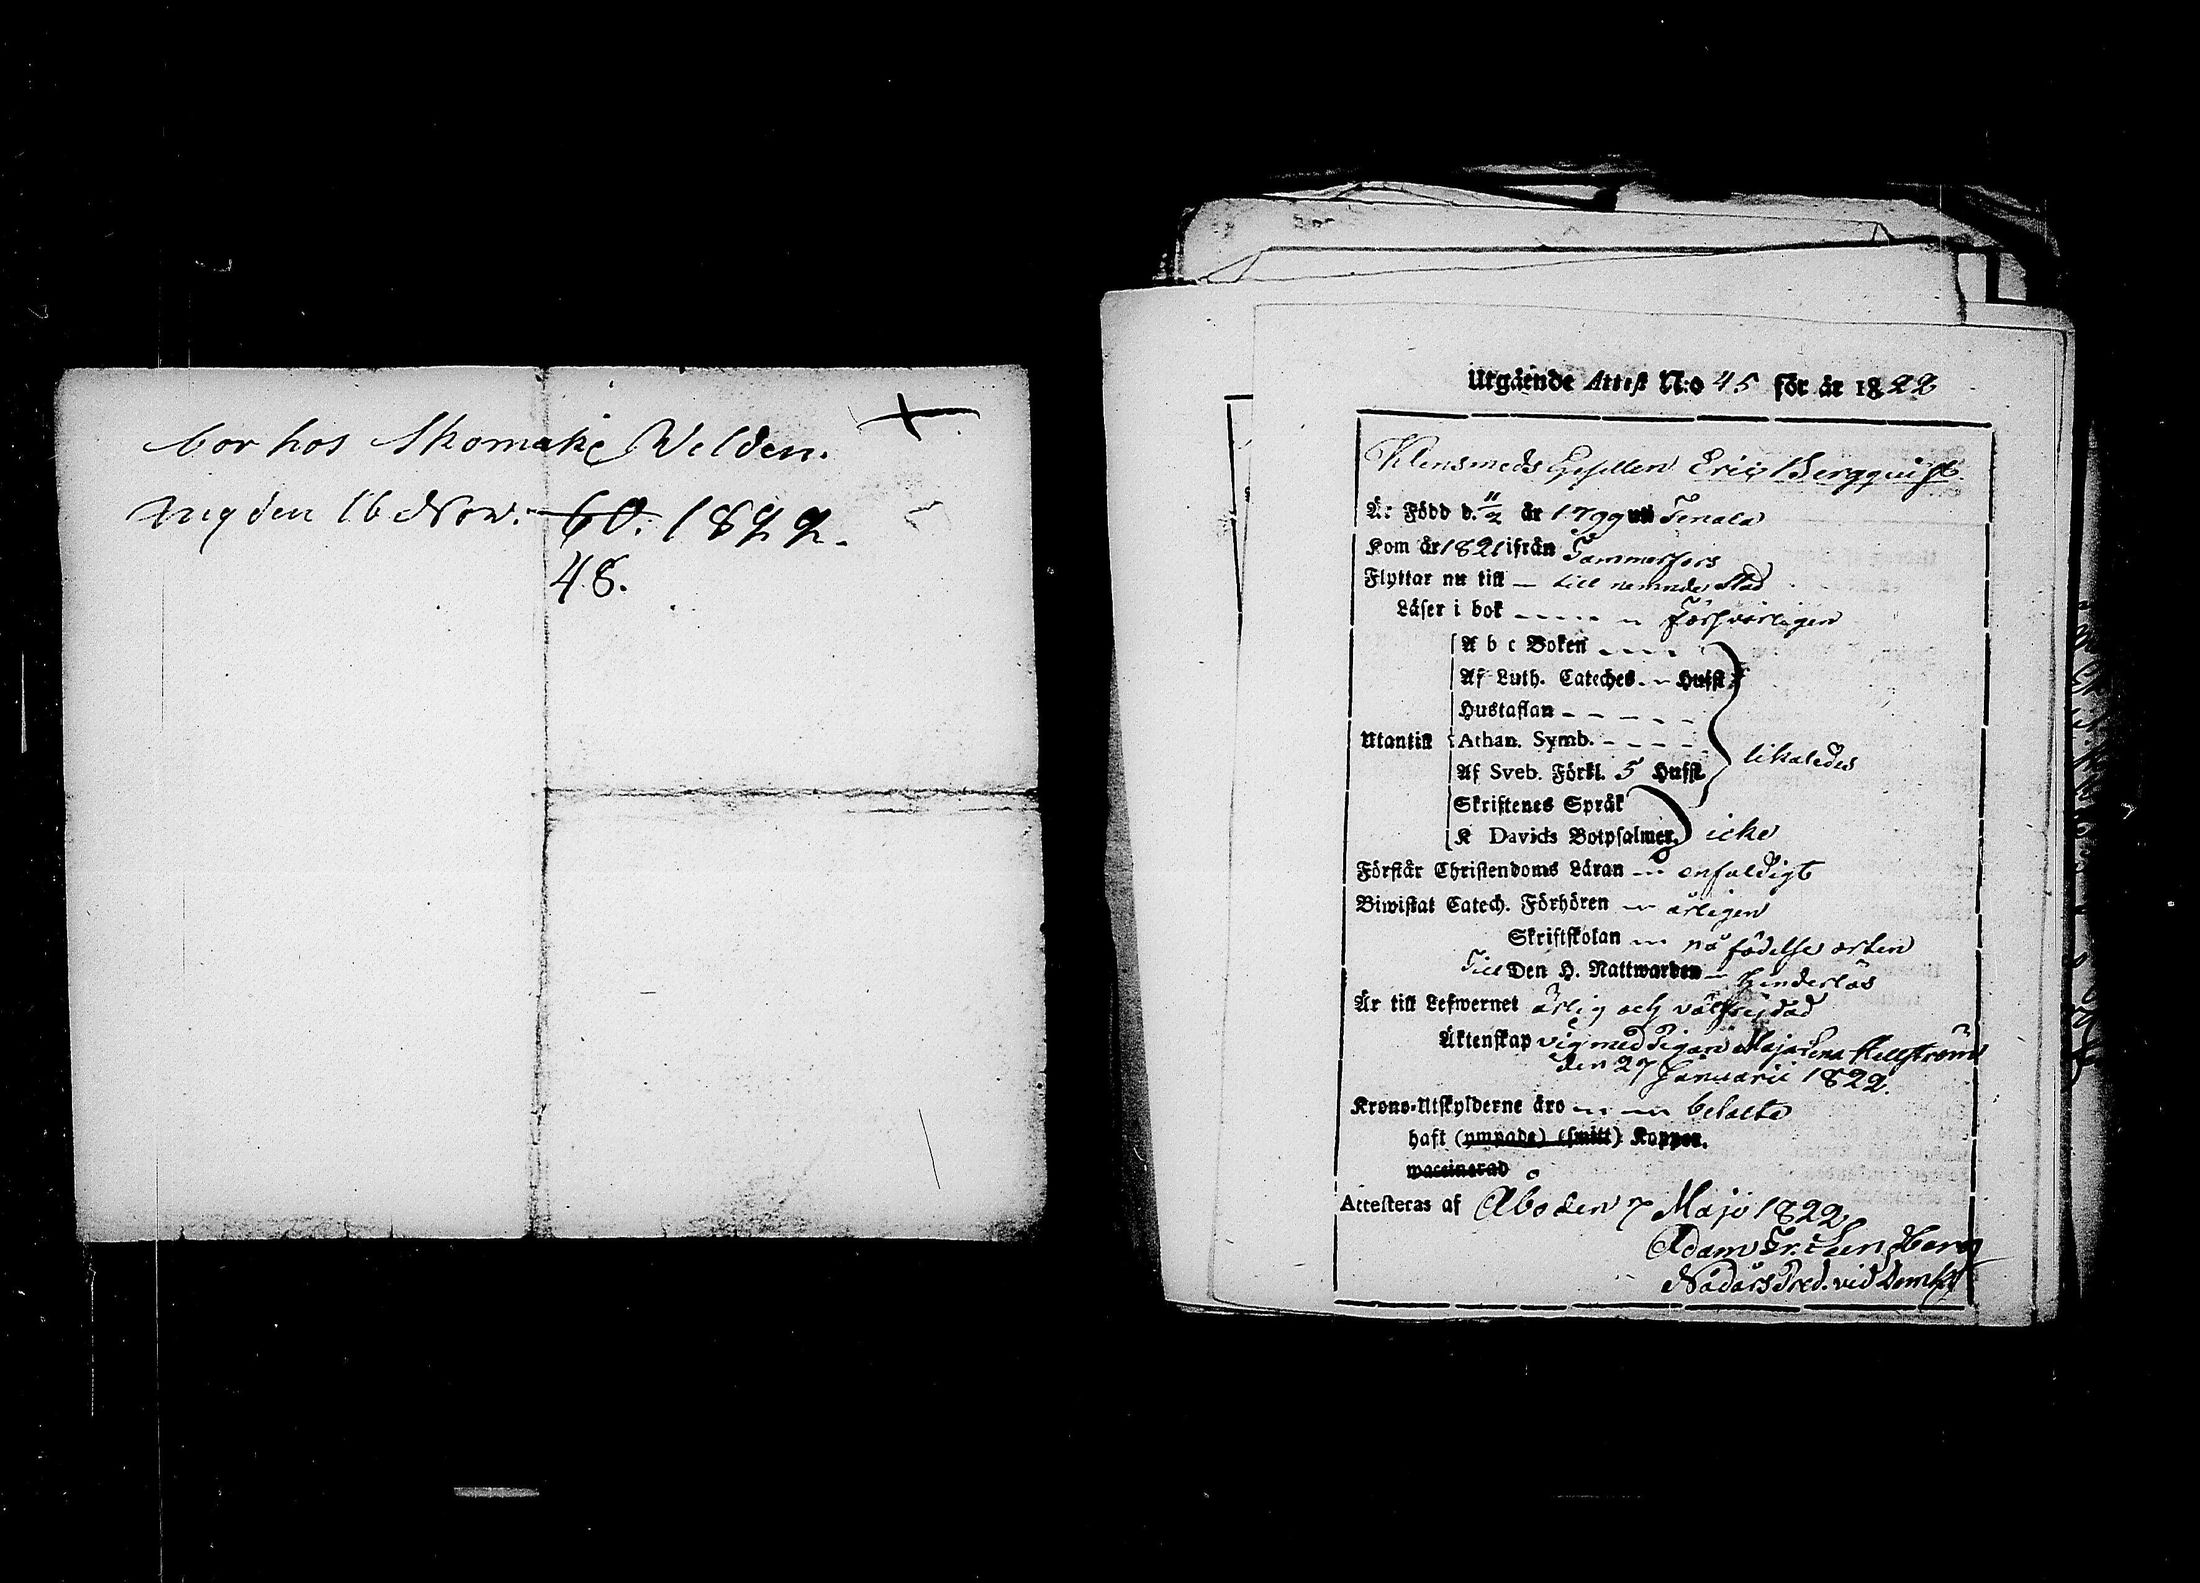 bor hos Skomak: Welden.
Ing den 16 Nov. 60. 1822.
48.
Utgående Attest N:o 45 för år 1822
Klensmeds Gesellen Eric Bergquist
Är Född d. 11/2 år 1799 uti Tenala
Kom år 1821 ifrån Tammerfors
Flyttar nu till – till nemnde Stad
Läser i bok - - - - - försvarligen
A b c Boken - - - -
Af Luth. Cateches. - - Hufst.
Hustaflan - - - - -
Utantill Athan. Symb. - - - - likaledes
Af Sveb. Förkl. 5 Hufst.
Skriftenes Språk
K Davids Botpsalmer. icke
Förstår Christendoms Läran - - enfaldigt
Biwistat Catech. Förhören - - årligen
Skriftskolan - - på födelse orten
Till Den H. Nattwarden - hinderlös
Är till Lefwernet ärlig och välfrejdad
Äktenskap vig med Pigan Maja Lena Hellström
den 27 Januarii 1822.
Krono-Utskylderne äro - - - betalte
haft (ympade) (smitt) Koppor.
waccinerad
Attesteras af Åbo den 7 Maji 1822
Adam Fr.
NådårsPred. vid Domk